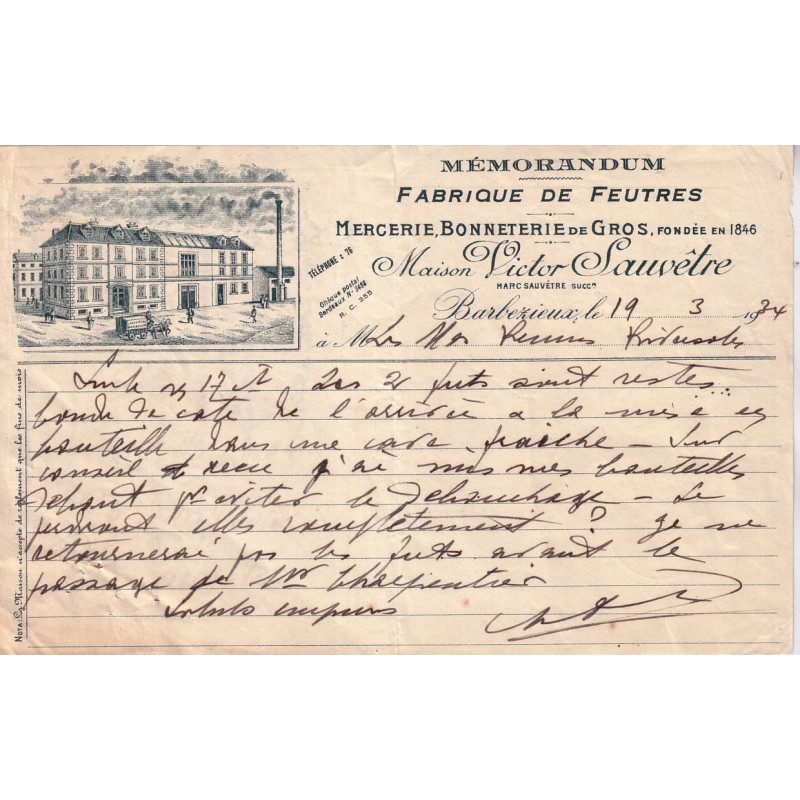 MÉMORANDUM
FABRIQUE DE FEUTRES
MERCERIE, BONNETERIE DE GROS, FONDÉE EN 1846
Maison Victor Sauvêtre
MARC SAUVÊTRE SUCCR
TÉLÉPHONE : 76
Chèque postal
Bordeaux No
R. C. 355
Barbezieux, le 19 3 1934
à M Les
17 2 futs sont restés
bonde de cote de l'arrivée a la mise en
bouteille dans une cave fraiche - Sur
conseil recu j'ai mis mes bouteilles
debout pr eviter le debouchage - Se
elles complètement ? je ne
retournerai pas les futs avant le
passage de Mr Charpentier
Saluts
NOTA: La Maison n'accepte de règlement que les fins de mois